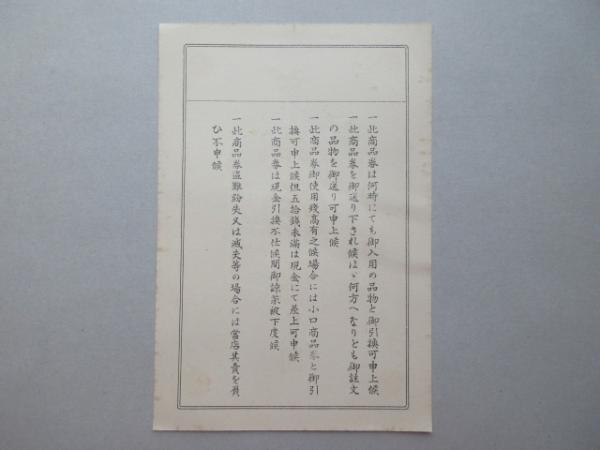 一此商品券は何時にても御入用の品物と御引換可申上候
一此商品券を御送り下され候はゞ何方へなりとも御註文
の品物を御送り可申上候
一此商品券御使用残高有之候場合には小口商品券と御引
換可申上候但五拾銭未満は現金にて差上可申候
一此商品券は現金引換不仕候間御諒案被下度候
一此商品券盗難紛失又は滅失等の場合には當店其責を負
ひ不申候